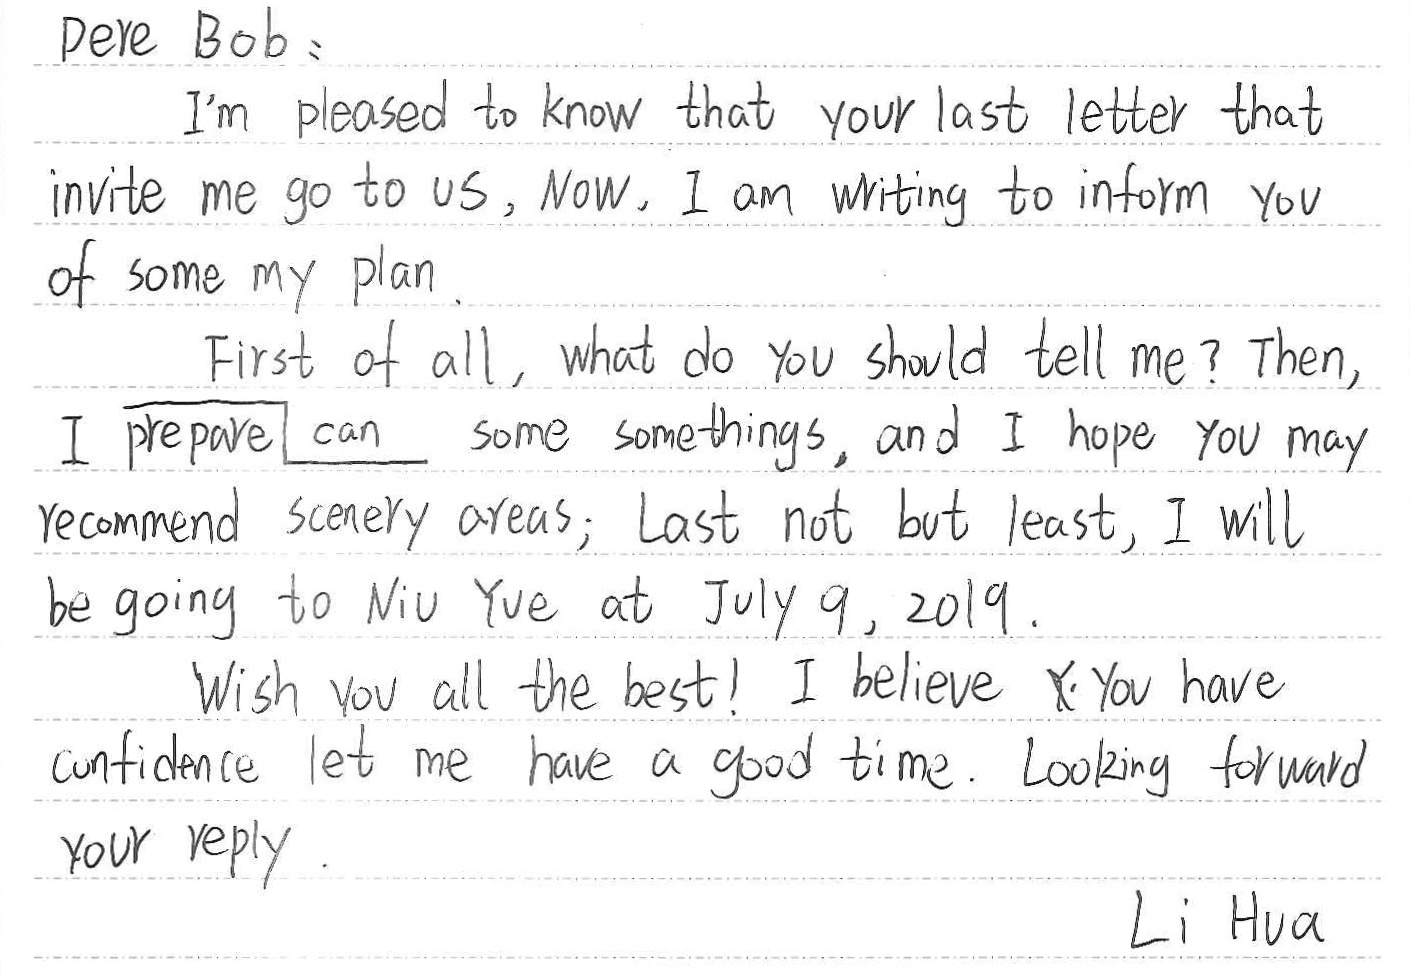 Dere Bob:
I'm pleased to know that your last letter that
invite me go to us, Now, I am writing to inform you
of some my plan.
First of all, what do you should tell me? Then,
I prepare can some somethings, and I hope you may
recommend scenery areas; Last not but least, I will
be going to Niu Yue at July 9, 2019.
Wish you all the best! I believe You have
confidence let me have a good time. Looking forward
your reply.
Li Hua